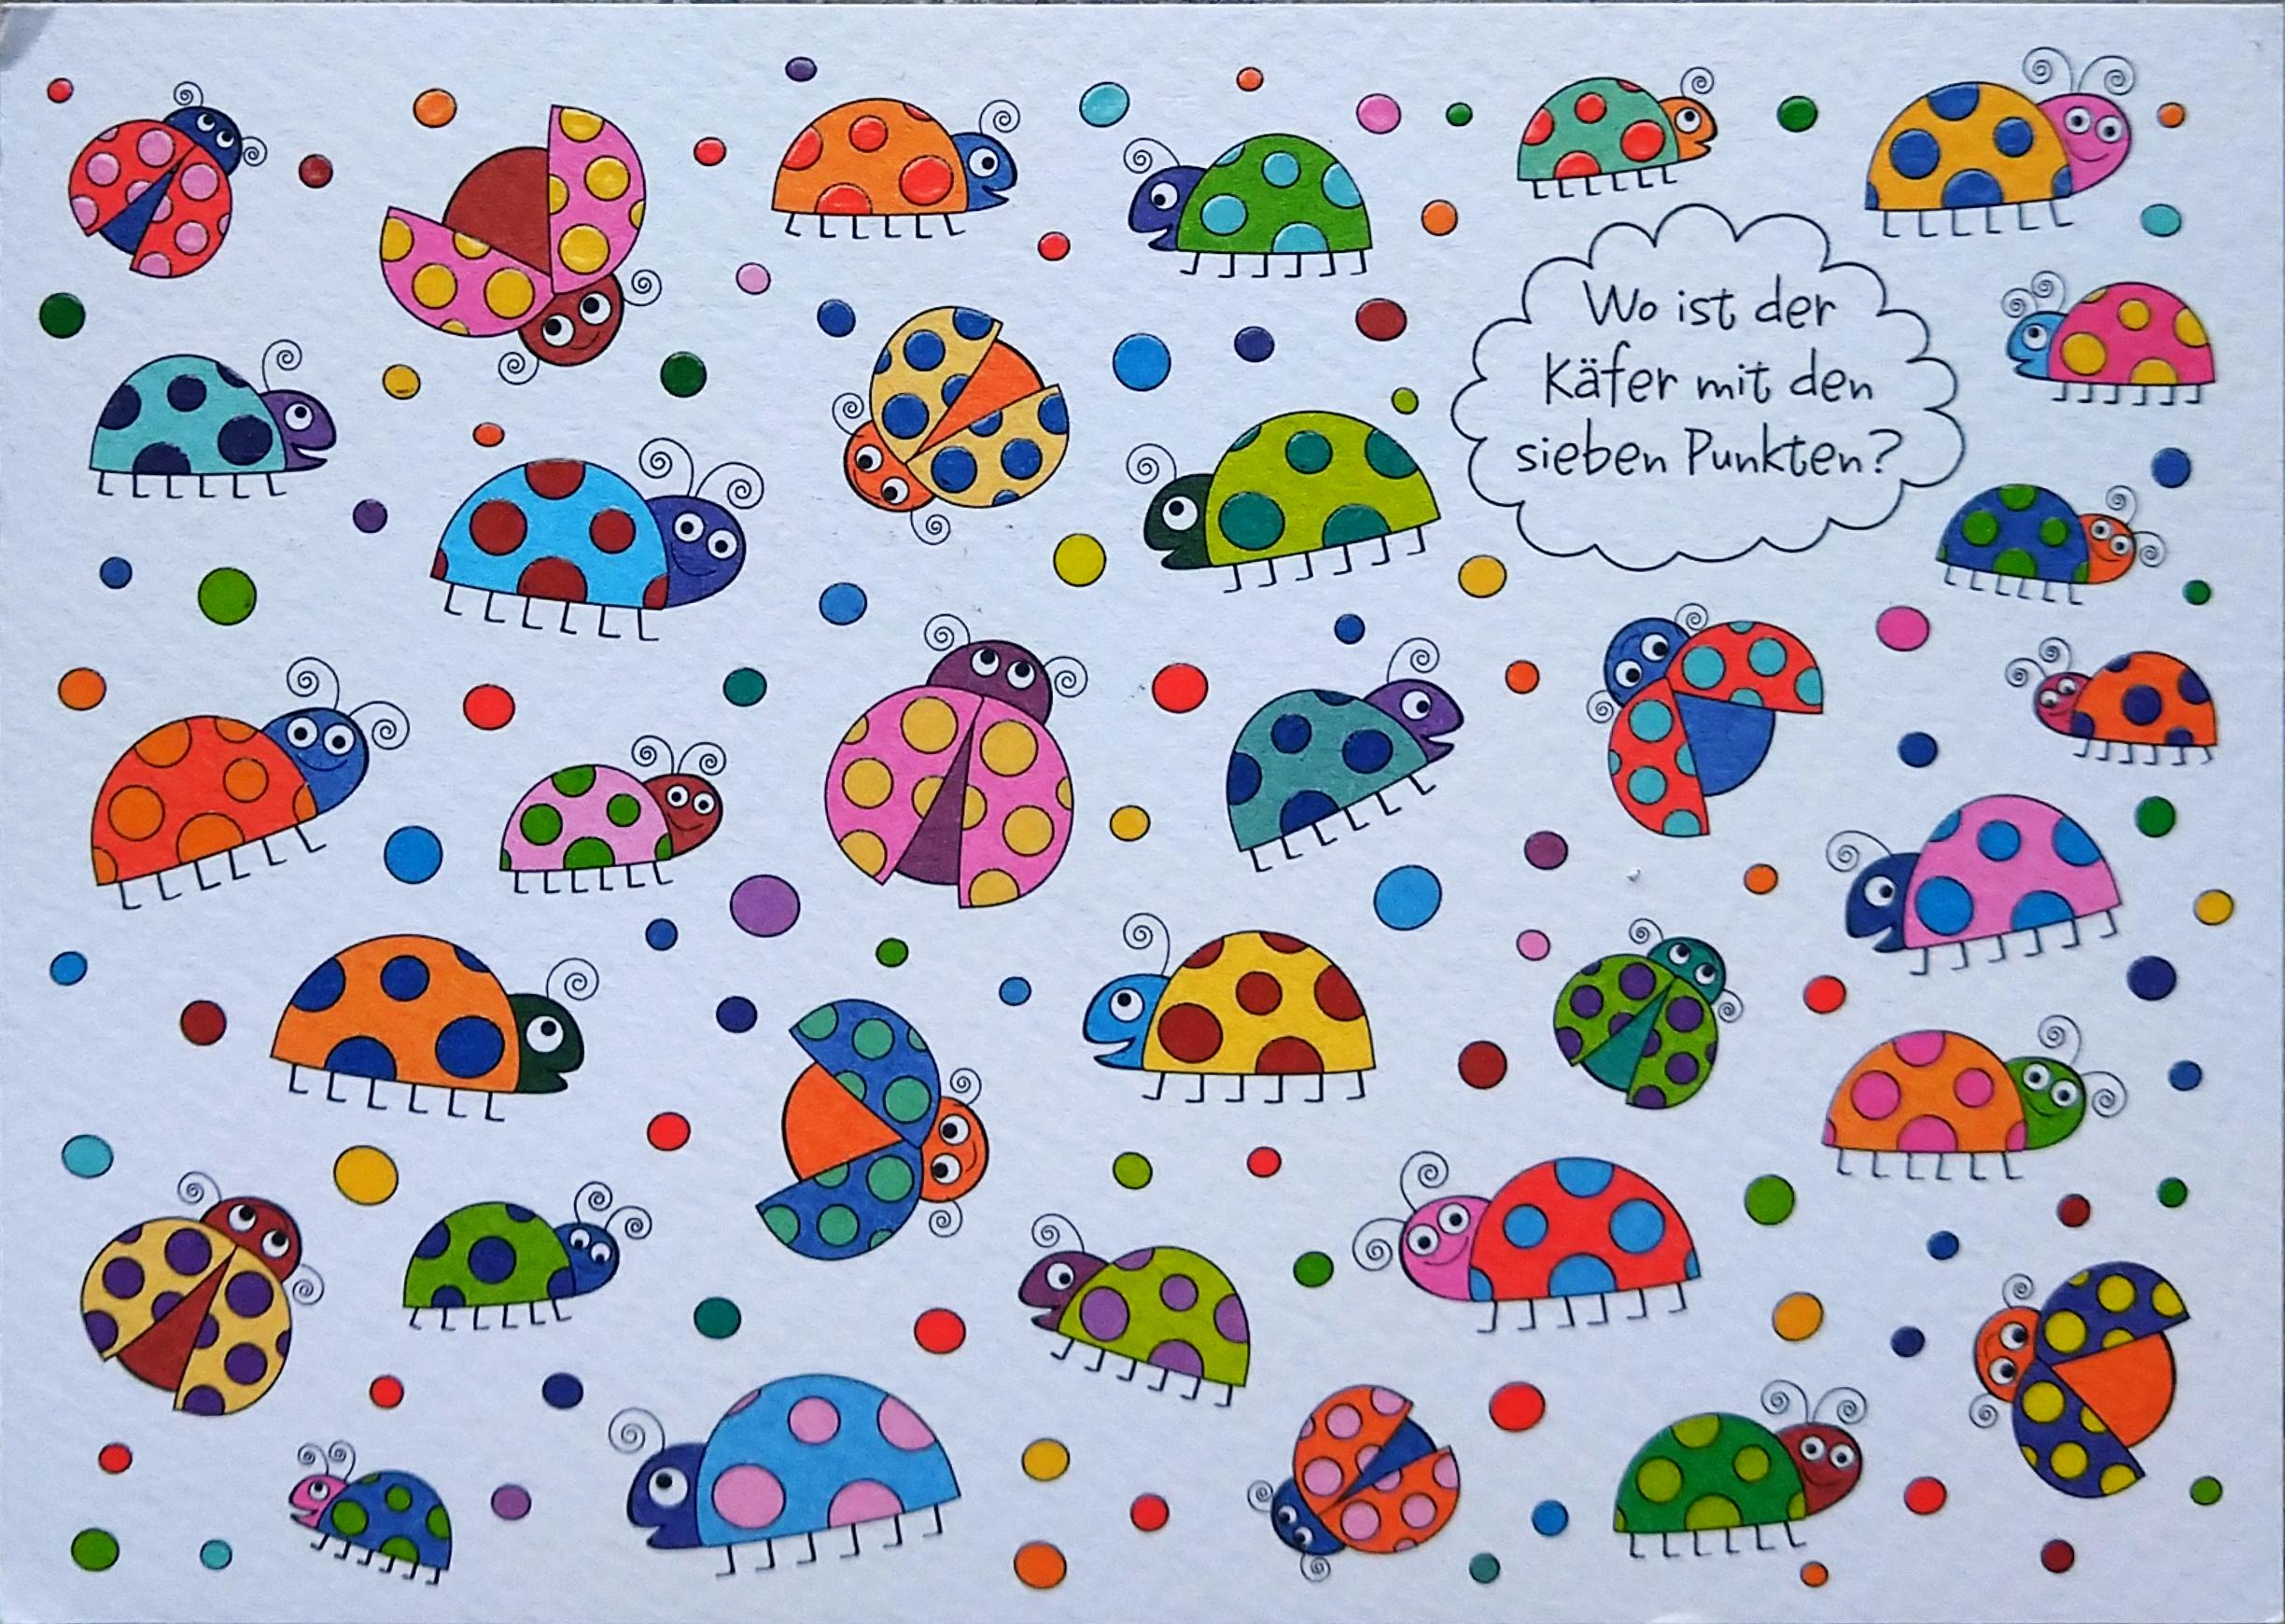 Wo ist der
Käfer mit den
sieben Punkten?